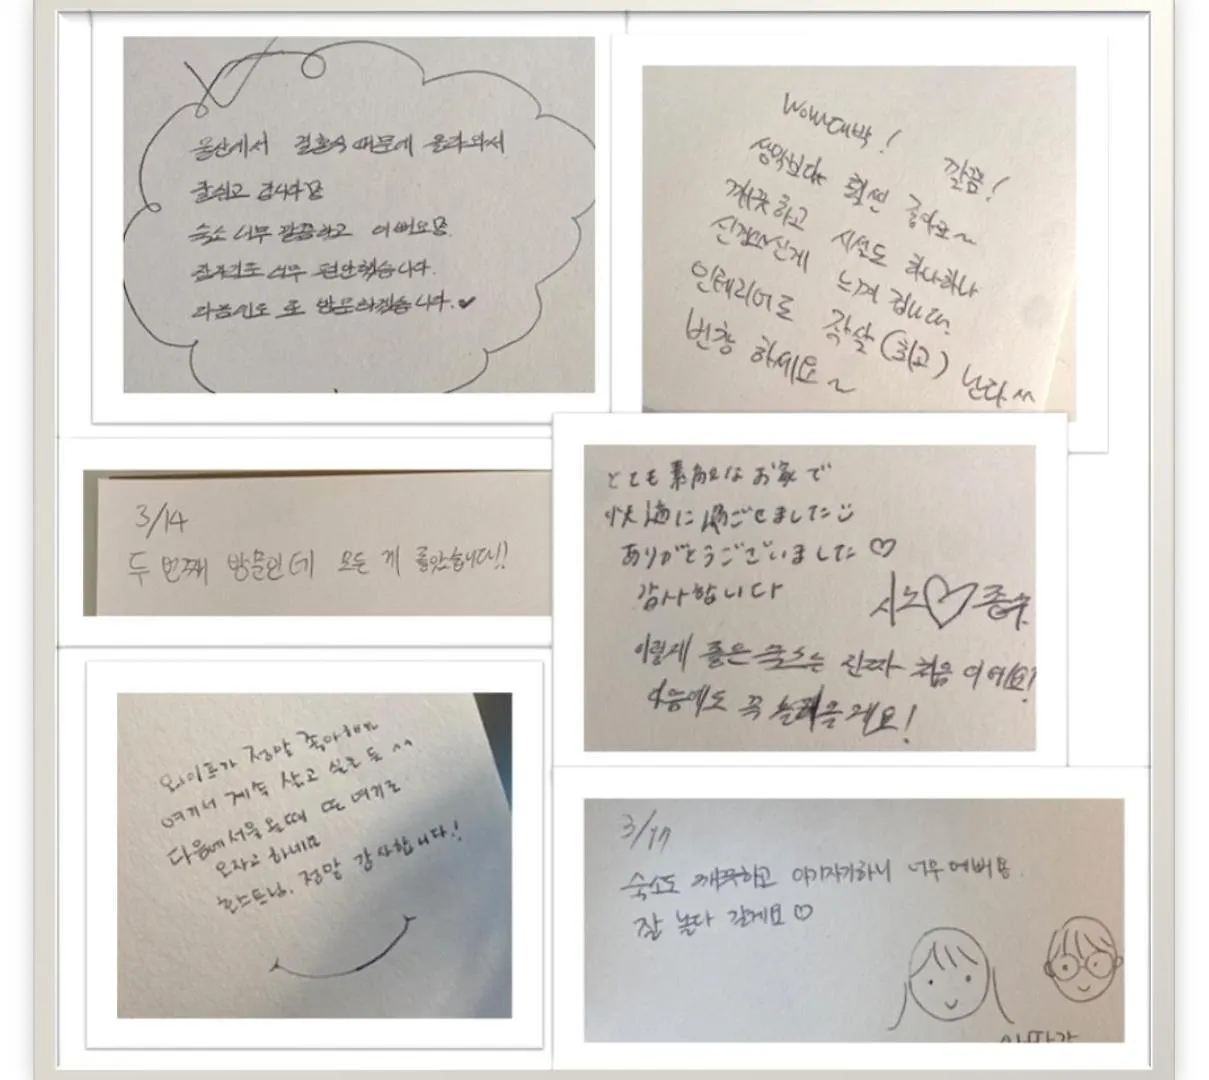 울산에서 결혼식 때문에 올라와서
잘쉬고 갑니다용
숙소 너무 깔끔하고 이뻐요용.
잠자리도 너무 편안했습니다.
다음에도 또 방문하겠습니다.♥
Wow대박! 깔끔!
생각보다 훨씬 좋아요~
깨끗하고 시설도 하나하나
신경쓰신게 느껴 집니다.
인테리어로 작살(최고) 난다.^^
번창 하세요~
3/14
두 번째 방문인데 모든 게 좋았습니다!!
とても素敵なお家で
快適に過ごせました
ありがとうございました♡
감사합니다
시노♡종수
이렇게 좋은 숙소는 진짜 처음 이에요!
다음에도 꼭 놀러올게요!
와이프가 정말 좋아해요
여기서 계속 살고 싶은 듯 ^^
다음에 서울 올때 또 여기로
오자고 하네요
호스트님, 정말 감사합니다!
3/17
숙소도 깨끗하고 아기자기하니 너무 예뻐용.
잘 놀다 갈게요♡